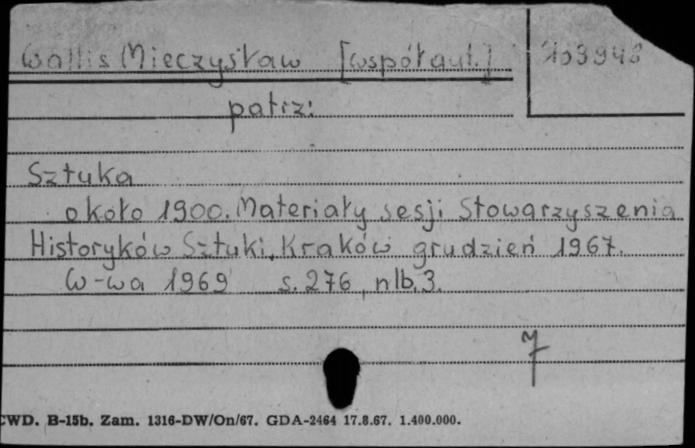 Wallis Mieczysław [współaut.]
patrz:
Sztuka
około 1900. Materiały sesji Stowarzyszenia
Historyków Sztuki, Kraków grudzień 1967.
W-wa 1969 s. 276, nlb. 3.
7
CWD. B-15b. Zam. 1316-DW/On/67. GDA-2464 17.8.67. 1.400.000.